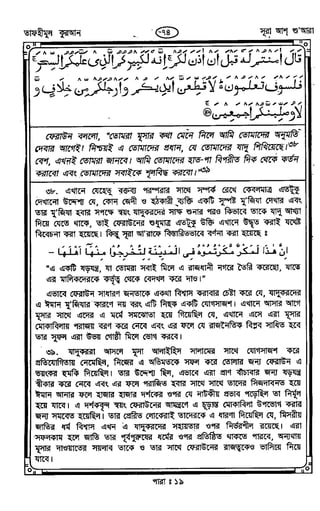 তাফহীমুল কুরআন
৭৪
সূরা আশ্ শু'আরা
قَالَ اٰمَنْتُمْ لَهٗ قَبْلَ اَنْ اٰذَنَ لَكُمْ اِنَّهٗ لَكَبِيْرُكُمُ الَّذِىْ عَلَّمَكُمُ السِّحْرَ
فَلَسَوْفَ تَعْلَمُوْنَ لَاُقَطِّعَنَّ اَيْدِيَكُمْ وَاَرْجُلَكُمْ مِّنْ خِلَافٍ وَّ
لَاُوصَلِّبَنَّكُمْ اَجْمَعِيْنَ
ফেরাউন বললো, "তোমরা মূসার কথা মেনে নিলে আমি তোমাদের অনুমতি
দেবার আগেই! নিশ্চয়ই এ তোমাদের প্রধান, যে তোমাদের যাদু শিখিয়েছে।৩৮
বেশ, এখনই তোমরা জানবে। আমি তোমাদের হাত-পা বিপরীত দিক থেকে কর্তন
করাবো এবং তোমাদের সবাইকে শূলবিদ্ধ করবো।"৩৯
৩৮. এখানে যেহেতু বক্তব্য পরম্পরার সাথে সম্পর্ক রেখে কেবলমাত্র এতটুকু
দেখানো উদ্দেশ্য যে, কোন জেদী ও হঠকারী ব্যক্তি একটি সুস্পষ্ট মু'জিযা দেখার এবং
তার মু'জিযা হবার সপক্ষে স্বয়ং যাদুকরদের সাক্ষ শুনার পরও কিভাবে তাকে যাদু আখ্যা
দিয়ে যেতে থাকে, তাই ফেরাউনের শুধুমাত্র এতটুকু উক্তি এখানে উদ্ধৃত করাই যথেষ্ট
বিবেচনা করা হয়েছে। কিন্তু সূরা আ'রাফে বিস্তারিতভাবে বর্ণনা করা হয়েছেঃ
اِنَّ هٰذَا لَمَكْرٌ مَّكَرْتُمُوْهُ فِى الْمَدِيْنَةِ لِتُخْرِجُوْا مِنْهَا اَهْلَهَا -
"এ একটি ষড়যন্ত্র, যা তোমরা সবাই মিলে এ রাজধানী নগরে তৈরি করেছো, যাতে
এর মালিকদেরকে কর্তৃত্ব থেকে বেদখল করে দাও।"
এভাবে ফেরাউন সাধারণ জনতাকে একথা বিশ্বাস করাবার চেষ্টা করে যে, যাদুকরদের
এ ঈমান মু'জিযার কারণে নয় বরং এটি নিছক একটি যোগসাজশ। এখানে আসার আগে
মূসার সাথে এদের এ মর্মে সমঝোতা হয়ে গিয়েছিল যে, এখানে এসে এরা মূসার
মোকাবিলায় পরাজয় বরণ করে নেবে এবং এর ফলে যে রাজনৈতিক বিপ্লব সাধিত হবে
তার সুফল এরা উভয় গোষ্ঠী মিলে ভোগ করবে।
৩৯. যাদুকররা আসলে মূসা আলাইহিস সালামের সাথে যোগসাজশ করে
প্রতিযোগিতায় নেমেছিল, নিজের এ অভিমতকে সফল করে তোলার জন্য ফেরাউন এ
ভয়ংকর হুমকি দিয়েছিল। তার উদ্দেশ্য ছিল, এভাবে এরা প্রাণ বাঁচাবার জন্য ষড়যন্ত্র
স্বীকার করে নেবে এবং এর ফলে পরাজিত হবার সাথে সাথে তাদের সিজদাবনত হয়ে
ঈমান আনার ফলে হাজার হাজার দর্শকের ওপর যে নাটকীয় প্রভাব পড়েছিল তা নির্মূল
হয়ে যাবে। এ দর্শকবৃন্দ স্বয়ং ফেরাউনের আমন্ত্রণে এ চূড়ান্ত মোকাবিলা উপভোগ করার
জন্য সমবেত হয়েছিল। তার প্রেরিত লোকেরাই তাদেরকে এ ধারণা দিয়েছিল যে, মিসরীয়
জাতির ধর্ম বিশ্বাস এখন এ যাদুকরদের সহায়তার ওপর নির্ভরশীল রয়েছে। এরা
সফলকাম হলে জাতি তার পূর্বপুরুষের ধর্মের ওপর প্রতিষ্ঠিত থাকতে পারবে, অন্যথায়
মূসার দাওয়াতের সয়লাব তাকে ও তার সাথে ফেরাউনের রাজত্বকেও ভাসিয়ে নিয়ে
যাবে।
পারা : ১৯